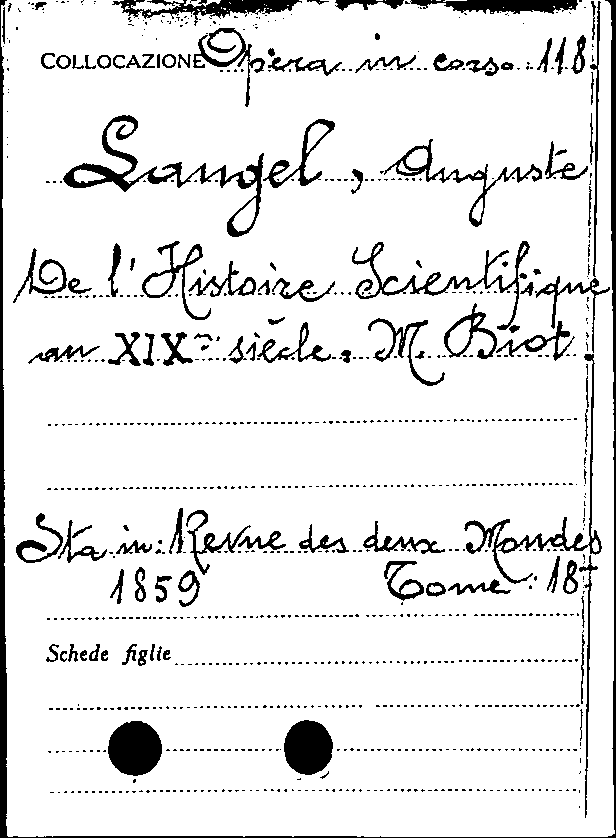 COLLOCAZIONE Opera in corso 118.
Laugel, Auguste
De l'Histoire Scientifique
au XIXme siècle. M. Biot.
Sta in: Revue des deux Mondes
1859 Tome: 18-
Schede figlie